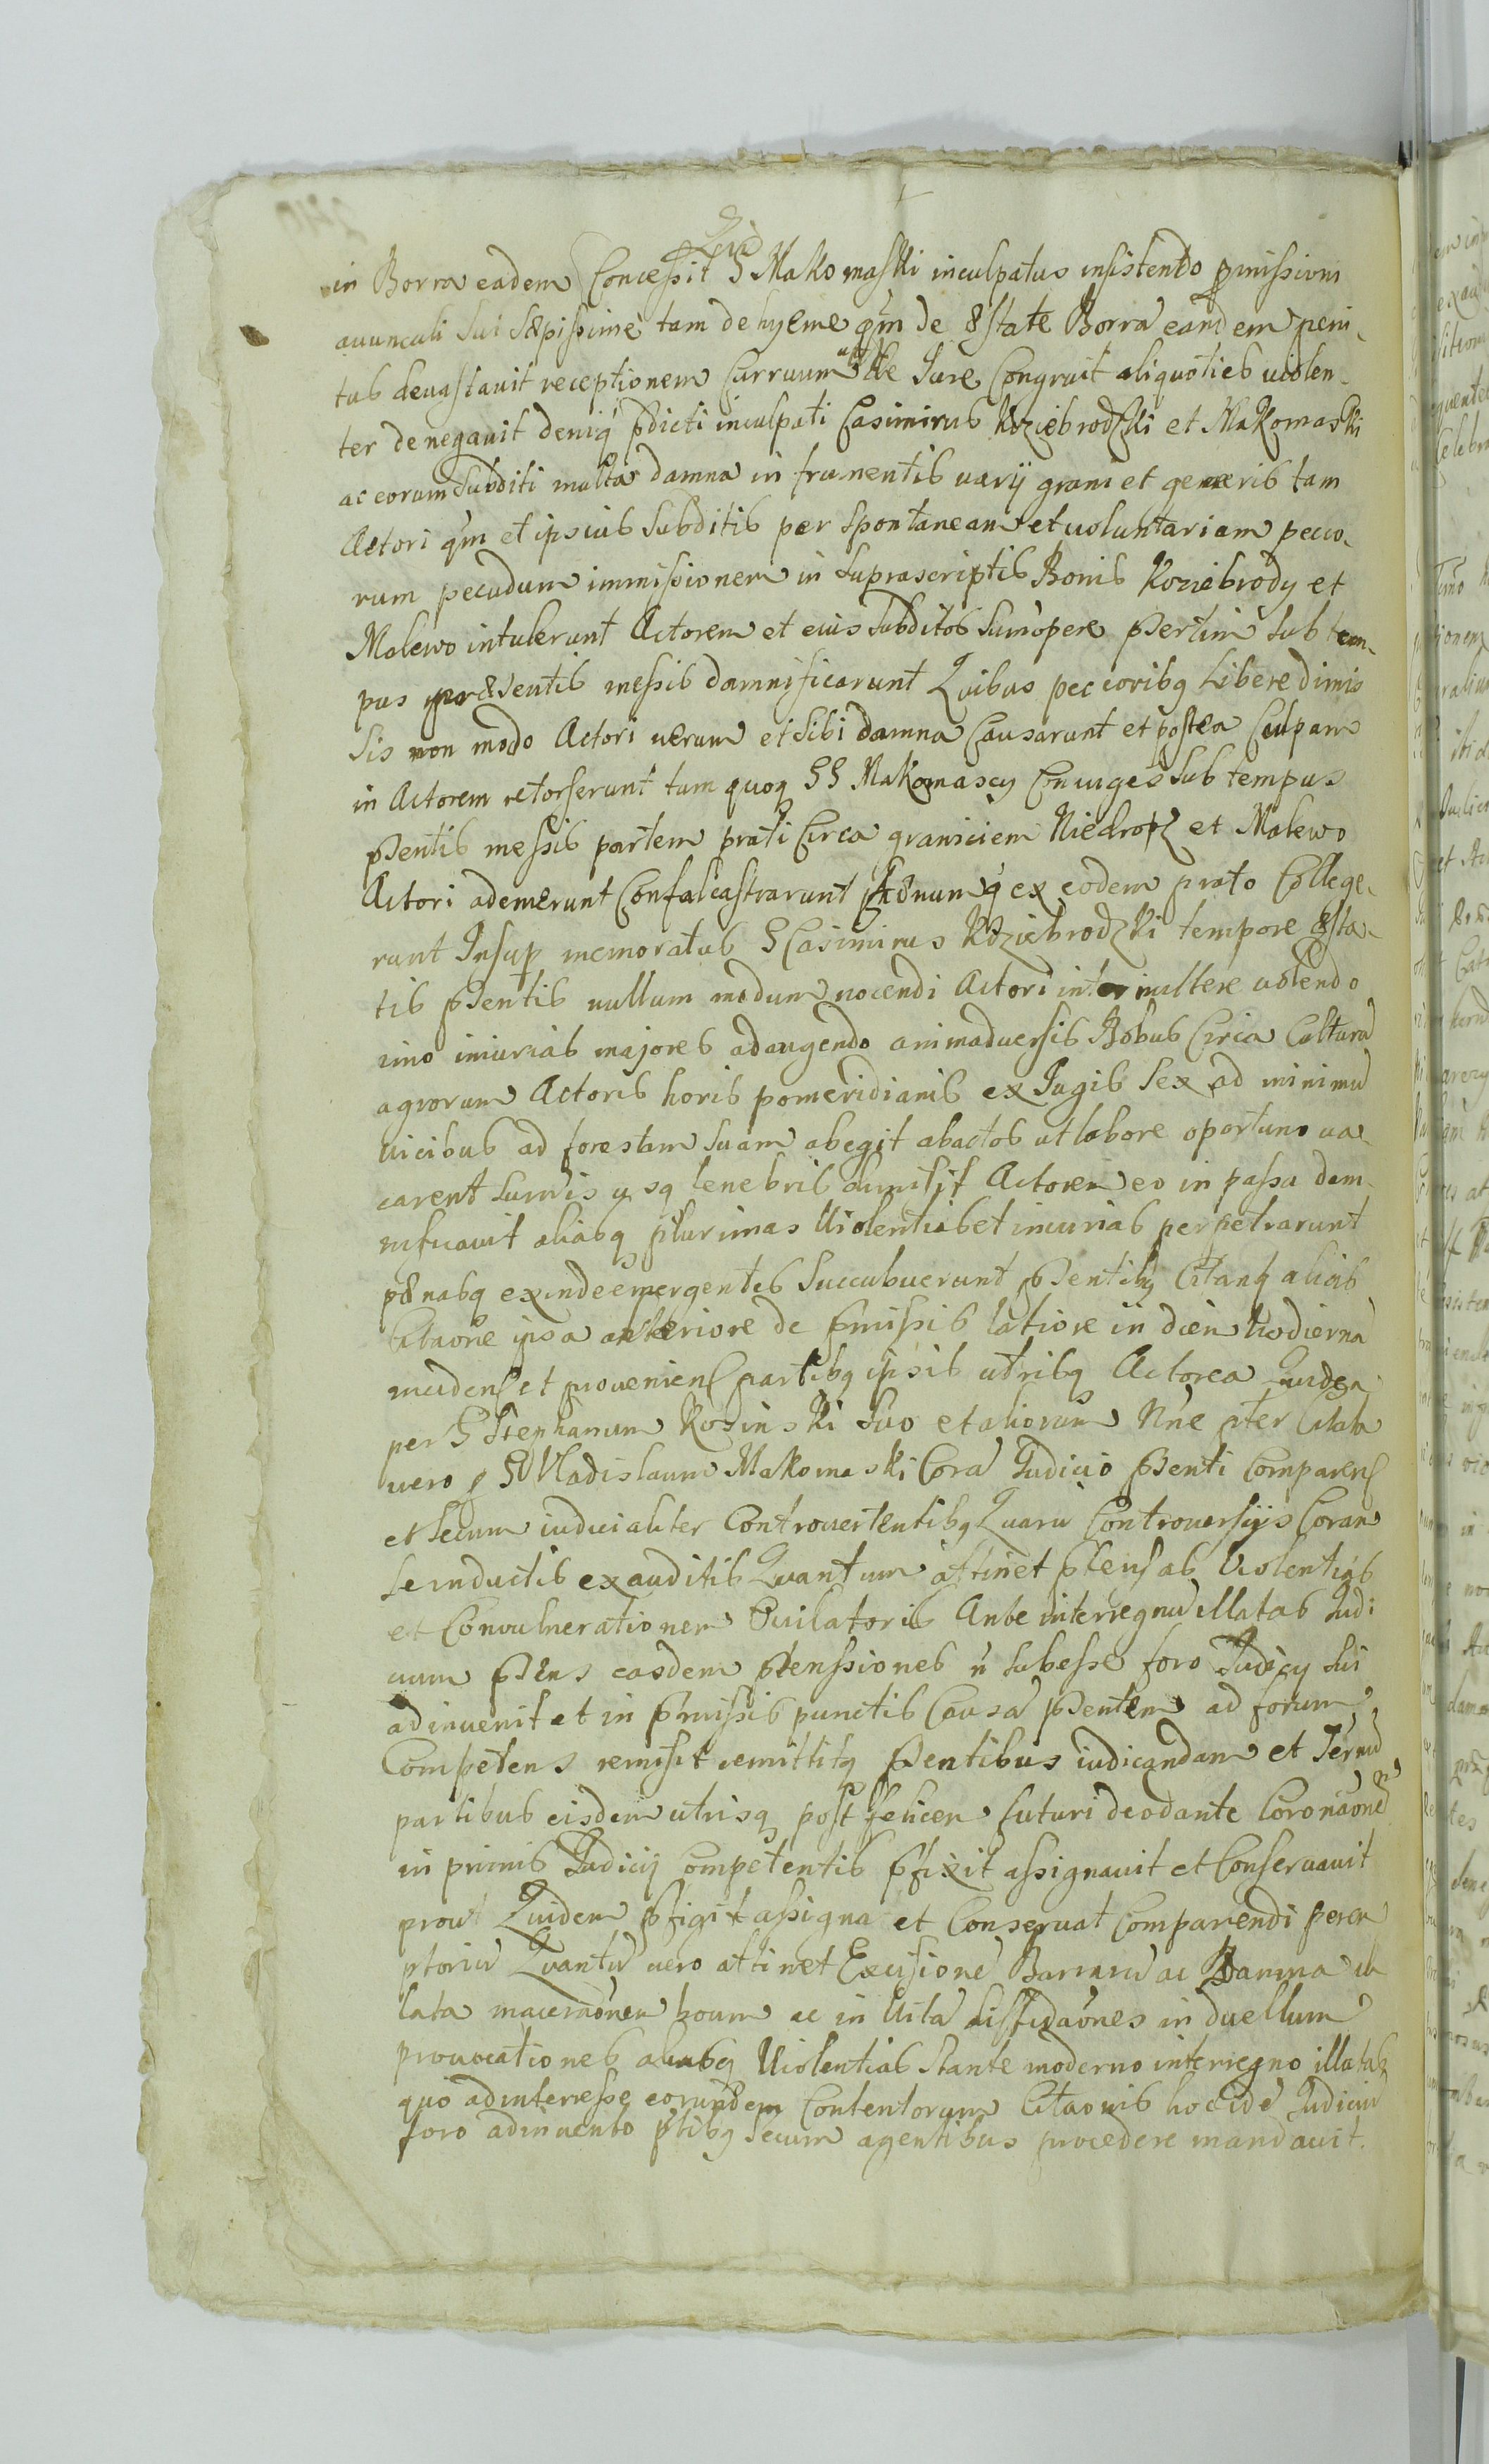 in Borra eadem Concessit Qui G Makomaski inculpatus insistendo pmissioni
auunculi sui sæpissime tam de hyeme qm de æstate Borra eandem peni-
tus deuastauit receptionem Curruum uti de Iure Congruit aliquoties uiolen-
ter denegauit deniq pdicti inculpati Casimirus Koziebrodzki et Makomaski
ac eorum Subditi multa damna in frumentis uarij grani et generis tam
Actori qm et ipsius Subditis per Spontaneam et uoluntariam peco-
rum pecudum immissionem in Suprascriptis Bonis Koziebrody et
Malewo intulerunt Actorem et eius Subditos Sumopere psertim Sub tem-
pus præsentis messis damnificarunt Quibus pecoribq Libere dimis
sis non modo Actori uerum et Sibi damna Causarunt et postea Culpam
in Actorem retorserunt tum quoq GG Makomascy Coniuges Sub tempus
psentis messis partem prati Circa graniciem Niedroz et Malewo
Actori ademerunt Confalcastrarunt fænumq ex eodem prato College-
runt Insup memoratus G Casimirus Koziebrodzki tempore æsta-
tis psentis nullum modum nocendi Actori intermittere uolendo
imo iniurias majores adaugendo animaduersis Bobus Circa Cultura
agrorum Actoris horis pomeridianis ex Iugis Sex ad minimu
uicibus ad forestam Suam abegit abactos ut labore oportuno ua-
carent tenebris dimisit Actorem eo in passu dam-
nificauit aliasq plurimas Uiolentias et iniurias perpetrarunt
pænasq exinde emergentes Succubuerunt psentibq Citanq alias
Citaone ipsa anteriore de pmissis latiore in diem hodierna
inciden et prouenien partibq ipsis utrisq Actorea Quidem
per G Stephanum Kosinski Suo et aliorum Nne pter Citata
uero p G Wladislaum Makomaski Cora Iudicio psenti Comparen
et Secum iudicialiter Controuertentibq Quaru Controuersijs Coram
Se inductis exauditis Quantum attinet ptensas Uiolentias
et Conuulnerationem Ante interregnu illatas Iudi
cium psens easdem ptenssiones n Subesse foro Iudicij Sui
adinuenit et in pmissis punctis Causa psentem ad forum
Competens remisit remittitq psentibus iudicandam et Termu
partibus eisdem utrisq post felicem futuri deodante Coronaone
in primis Iudicij Competentis pfixit assignauit et Conseruauit
prout Quidem pfigit assigna et Conseruat Comparendi perem
ptoriu Quantu uero attinet Excisione Borraru ac Damna il
lata maceraonem boum ac in Uita diffidaones in duellum
prouocationes aliasq Uiolentias Stante moderno interregno illatas
quo ad interesse eorundem Contentorum Citaonis hoc ide Iudiciu
foro adinuento ptibq Secum agentibus procedere mandauit.